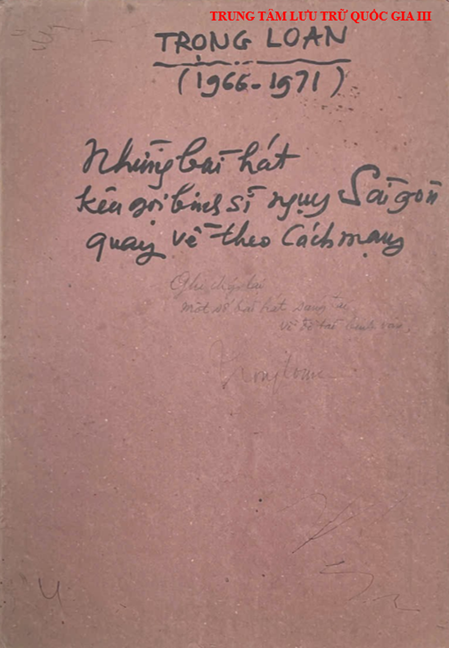 TRUNG TÂM LƯU TRỮ QUỐC GIA III
TRỌNG LOAN
(1966-1971)
Những bài hát
kêu gọi binh sĩ ngụy Sài gòn
quay về theo Cách mạng
Ghi chép lại
một số bài hát sáng tác
về đề tài binh vận
Trọng Loan